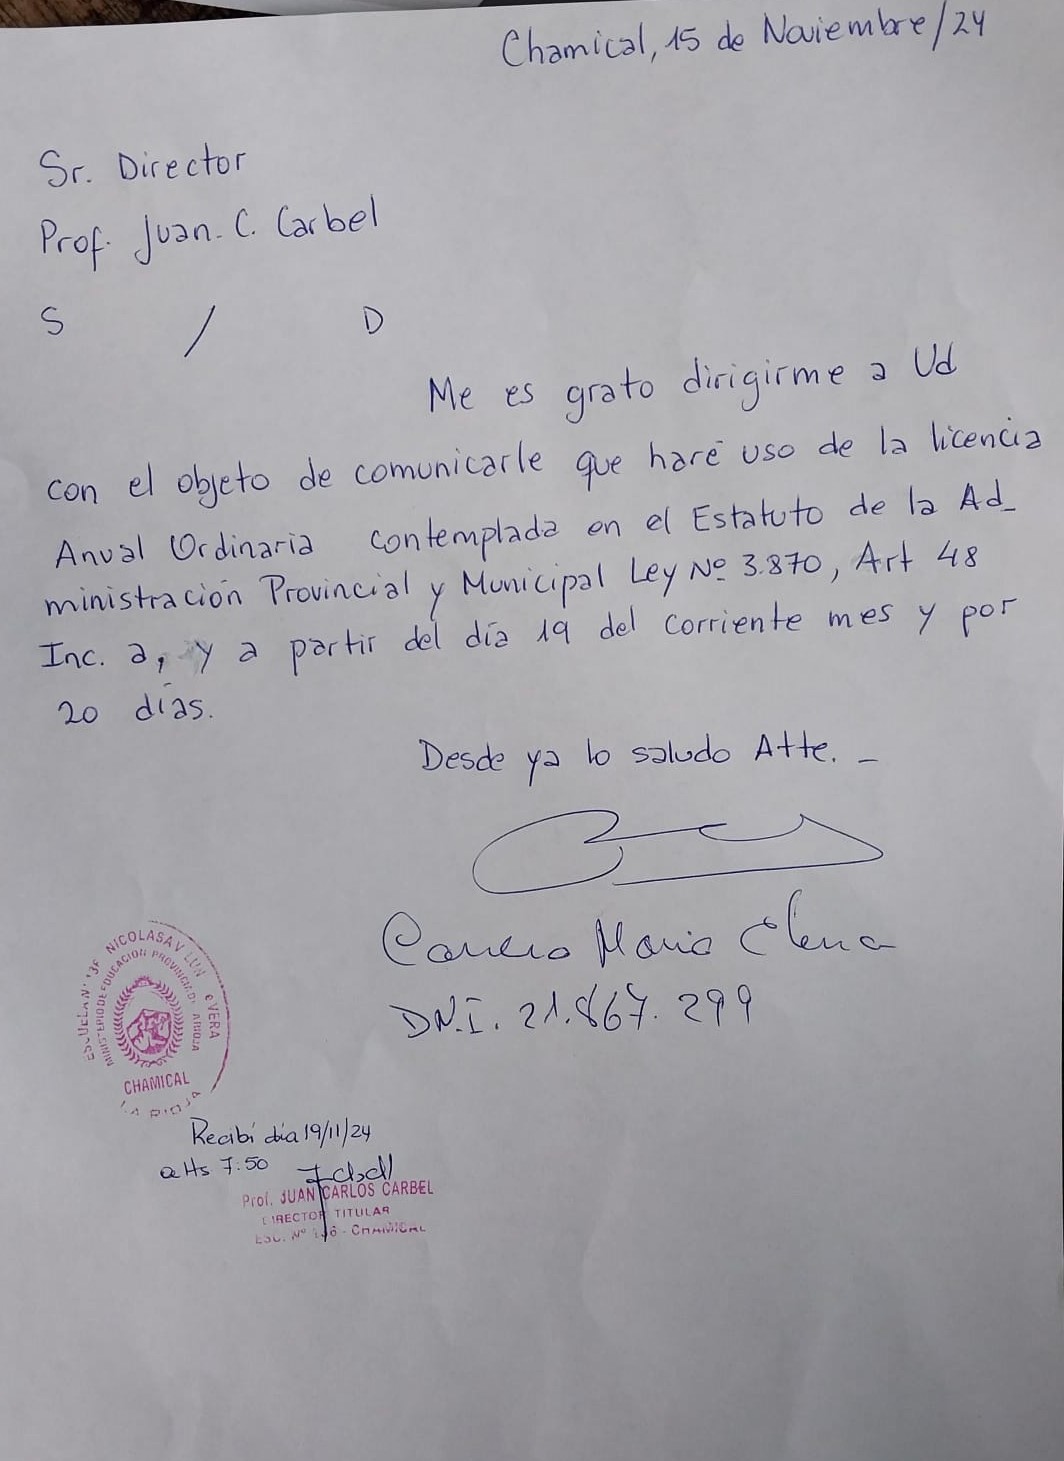 Chamical, 15 de Noviembre/24
Sr. Director
Prof. Juan. C. Carbel
S / D
Me es grato dirigirme a Ud
con el objeto de comunicarle que haré uso de la licencia
Anual Ordinaria contemplada en el Estatuto de la Ad_
ministración Provincial y Municipal Ley Nº 3.870, Art 48
Inc. a, y a partir del día 19 del corriente mes y por
20 días.
Desde ya lo saludo Atte. _
Maria Elena
D.N.I. 21.867.299
ESCUELA Nº NICOLASA V VERA
MINISTERIO DE EDUCACION PROVINCIA RIOJA
CHAMICAL
LA RIOJA
Recibí día 19/11/24
a Hs 7:50
Prof. JUAN CARLOS CARBEL
DIRECTOR TITULAR
ESC. Nº - CHAMICAL